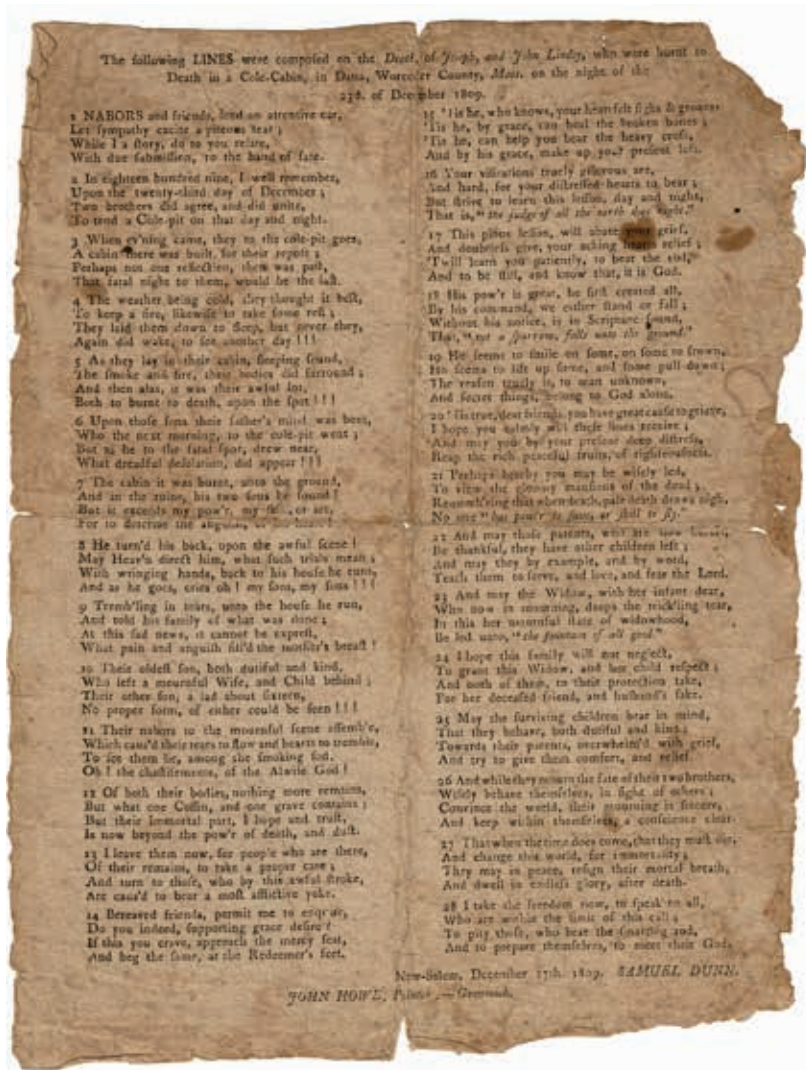 The following LINES were composed on the Death, of Joseph, and John Lindsy, who were burnt to
Death in a Cole-Cabin, in Dana, Worcester County, Mass. on the night of the
23d. of December 1809.
1 NABORS and friends, lend an attentive ear,
Let sympathy excite a piteous tear ;
While I a story, do to you relate,
With due submission, to the hand of fate.
2 In eighteen hundred nine, I well remember,
Upon the twenty-third day of December ;
Two brothers did agree, and did unite,
To tend a Cole-pit on that day and night.
3 When ev'ning came, they to the cole-pit goes,
A cabin there was built, for their repose ;
Perhaps not one reflection, them was past,
That fatal night to them, would be the last.
4 The weather being cold, they thought it best,
To keep a fire, likewise to take some rest ;
They laid them down to sleep, but never they,
Again did wake, to see another day ! ! !
5 As they lay in their cabin, sleeping sound,
The smoke and fire, their bodies did surround ;
And then alas, it was their awful lot,
Both to burnt to death, upon the spot ! ! !
6 Upon those sons their father's mind was bent,
Who the next morning, to the cole-pit went ;
But as he to the fatal spot, drew near,
What dreadful desolation, did appear ! ! !
7 The cabin it was burnt, unto the ground,
And in the ruins, his two sons he found !
But it exceeds my pow'r, my skill, or art,
For to describe the anguish, of his heart !
8 He turn'd his back, upon the awful scene !
May Heav'n direct him, what such trials mean ;
With wringing hands, back to his house he runs,
And as he goes, cries oh ! my sons, my sons ! ! !
9 Trembling in tears, unto the house he run,
And told his family of what was done ;
At this sad news, it cannot be exprest,
What pain and anguish fill'd the mother's breast !
10 Their oldest son, both dutiful and kind,
Who left a mournful Wife, and Child behind ;
Their other son, a lad about sixteen,
No proper form, of either could be seen ! ! !
11 Their nabors to the mournful scene assemble,
Which caus'd their tears to flow and hearts to tremble,
To see them lie, among the smoking sod.
Oh ! the chastisements, of the Alwise God !
12 Of both their bodies, nothing more remains,
But what one Coffin, and one grave contains ;
But their immortal part, I hope and trust,
Is now beyond the pow'r of death, and dust.
13 I leave them now, for people who are there,
Of their remains, to take a proper care ;
And turn to those, who by this awful stroke,
Are caus'd to bear a most afflictive yoke.
14 Bereaved friends, permit me to enquire,
Do you indeed, supporting grace desire ?
If this you crave, approach the mercy seat,
And beg the same, at the Redeemer's feet.
15 'Tis he, who knows, your heart felt sighs & groans
'Tis he, by grace, can heal the broken bones ;
'Tis he, can help you bear the heavy cross,
And by his grace, make up your present loss.
16 Your visitations truely grievous are,
And hard, for your distressed hearts to bear ;
But strive to learn this lesson, day and night,
That is, "the judge of all the earth does right."
17 This pious lesson, will abate your grief,
And doubtless give, your aching heart relief ;
'Twill learn you patiently, to bear the rod,
And to be still, and know that, it is God.
18 His pow'r is great, he first created all,
By his command, we either stand or fall ;
Without his notice, is in Scripture found,
That, "not a sparrow, falls unto the ground."
19 He seems to smile on some, on some to frown,
He seems to lift up some, and some pull down ;
The reason truely is, to man unknown,
And secret things, belong to God alone.
20 'Tis true, dear friends, you have great cause to grieve,
I hope you calmly will these lines receive ;
And may you by your present deep distress,
Reap the rich peaceful fruits, of righteousness.
21 Perhaps hereby you may be wisely led,
To view the gloomy mansions of the dead ;
Rememb'ring that when death, pale death draws nigh,
No one "has pow'r to faint, or skill to fly."
22 And may those parents, who are now
Be thankful, they have other children left ;
And may they by example, and by word,
Teach them to serve, and love, and fear the Lord.
23 And may the Widow, with her infant dear,
Who now in mourning, drops the trick'ling tear,
In this her mournful state of widowhood,
Be led unto, "the fountain of all good."
24 I hope this family will not neglect,
To grant this Widow, and her child respect ;
And both of them, to their protection take,
For her deceased friend, and husband's sake.
25 May the surviving children bear in mind,
That they behave, both dutiful and kind ;
Towards their parents, overwhelm'd with grief,
And try to give them comfort, and relief.
26 And while they mourn the fate of their two brothers,
Wisely behave themselves, in sight of others ;
Convince the world, their mourning is sincere,
And keep within themselves, a conscience clear.
27 That when the time does come, that they must die,
And change this world, for immortality ;
They may in peace, resign their mortal breath,
And dwell in endless glory, after death.
28 I take the freedom now, to speak to all,
Who are within the limit of this call ;
To pity those, who bear the smarting rod,
And to prepare themselves, to meet their God.
New-Salem, December 27th. 1809. SAMUEL DUNN.
JOHN HOWE, Printer,—Greenwich.